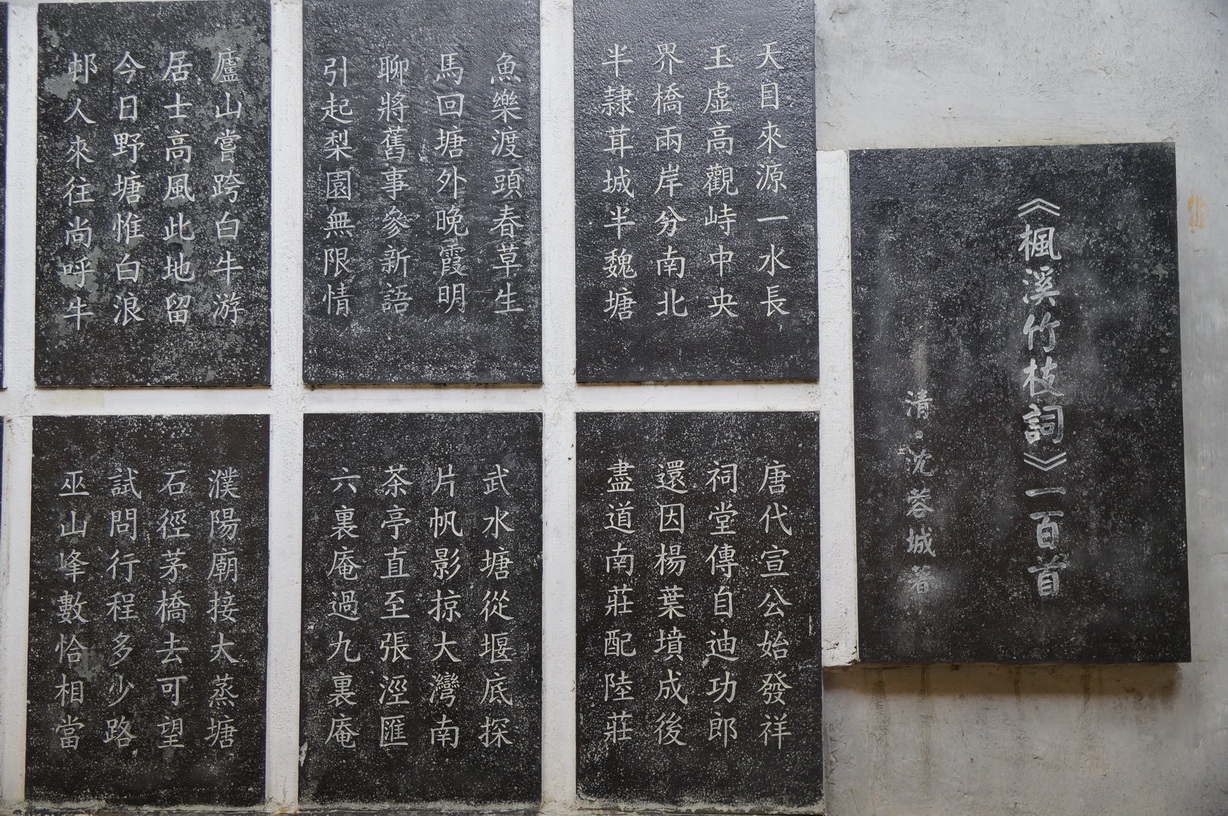 《楓溪竹枝詞》一百首
清·沈蓉城著
天目來源一水長
玉虛高觀峙中央
界橋兩岸分南北
半隸茸城半魏塘
唐代宣公始發祥
祠堂傳自迪功郎
還因楊葉墳成後
盡道南莊配陸莊
魚樂渡頭春草生
馬回塘外晚霞明
聊將舊事參新語
引起梨園無限情
武水塘從堰底探
片帆影掠大灣南
茶亭直至張涇匯
六裏庵過九裏庵
廬山嘗跨白牛游
居士高風此地留
今日野塘惟白浪
邨人來往尚呼牛
濮陽廟接太蒸塘
石徑茅橋去可望
試問行程多少路
巫山峰數恰相當